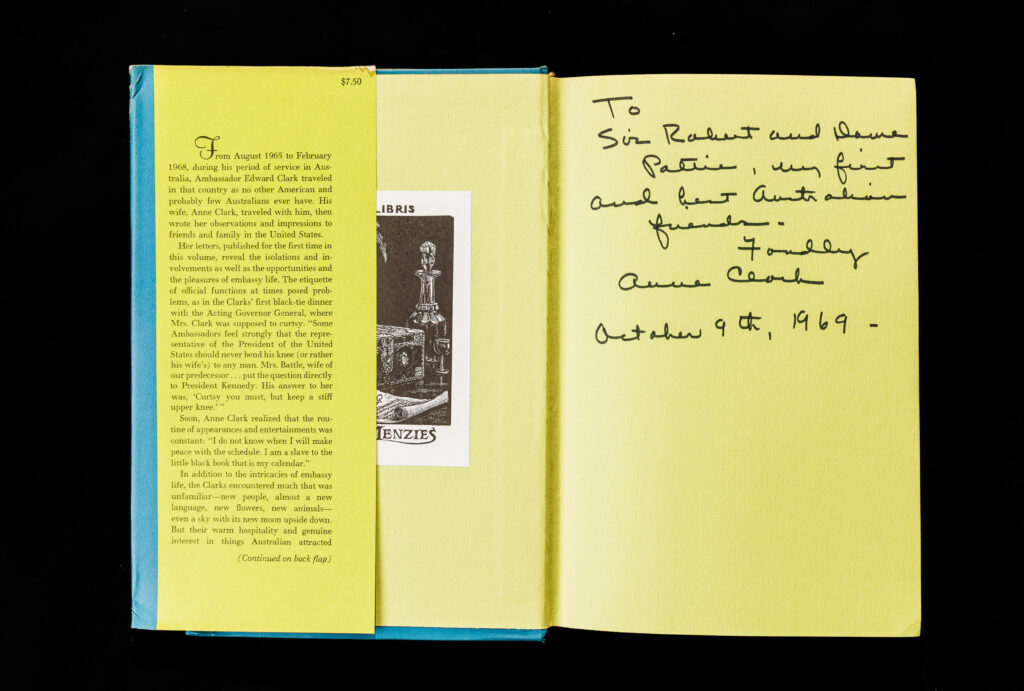 $7.50
From August 1965 to February
1968, during his period of service in Aus-
tralia, Ambassador Edward Clark traveled
in that country as no other American and
probably few Australians ever have. His
wife, Anne Clark, traveled with him, then
wrote her observations and impressions to
friends and family in the United States.
Her letters, published for the first time in
this volume, reveal the isolations and in-
volvements as well as the opportunities and
the pleasures of embassy life. The etiquette
of official functions at times posed prob-
lems, as in the Clarks' first black-tie dinner
with the Acting Governor General, where
Mrs. Clark was supposed to curtsy. "Some
Ambassadors feel strongly that the repre-
sentative of the President of the United
States should never bend his knee (or rather
his wife's) to any man. Mrs. Battle, wife of
our predecessor . . . put the question directly
to President Kennedy. His answer to her
was, 'Curtsy you must, but keep a stiff
upper knee.' "
Soon, Anne Clark realized that the rou-
tine of appearances and entertainments was
constant: "I do not know when I will make
peace with the schedule. I am a slave to the
little black book that is my calendar."
In addition to the intricacies of embassy
life, the Clarks encountered much that was
unfamiliar—new people, almost a new
language, new flowers, new animals—
even a sky with its new moon upside down.
But their warm hospitality and genuine
interest in things Australian attracted
(Continued on back flap)
LIBRIS
MENZIES
To
Sir Robert and Dame
Pattie, my first
and best Australian
friends -
Fondly
Anne Clark
October 9th, 1969 -